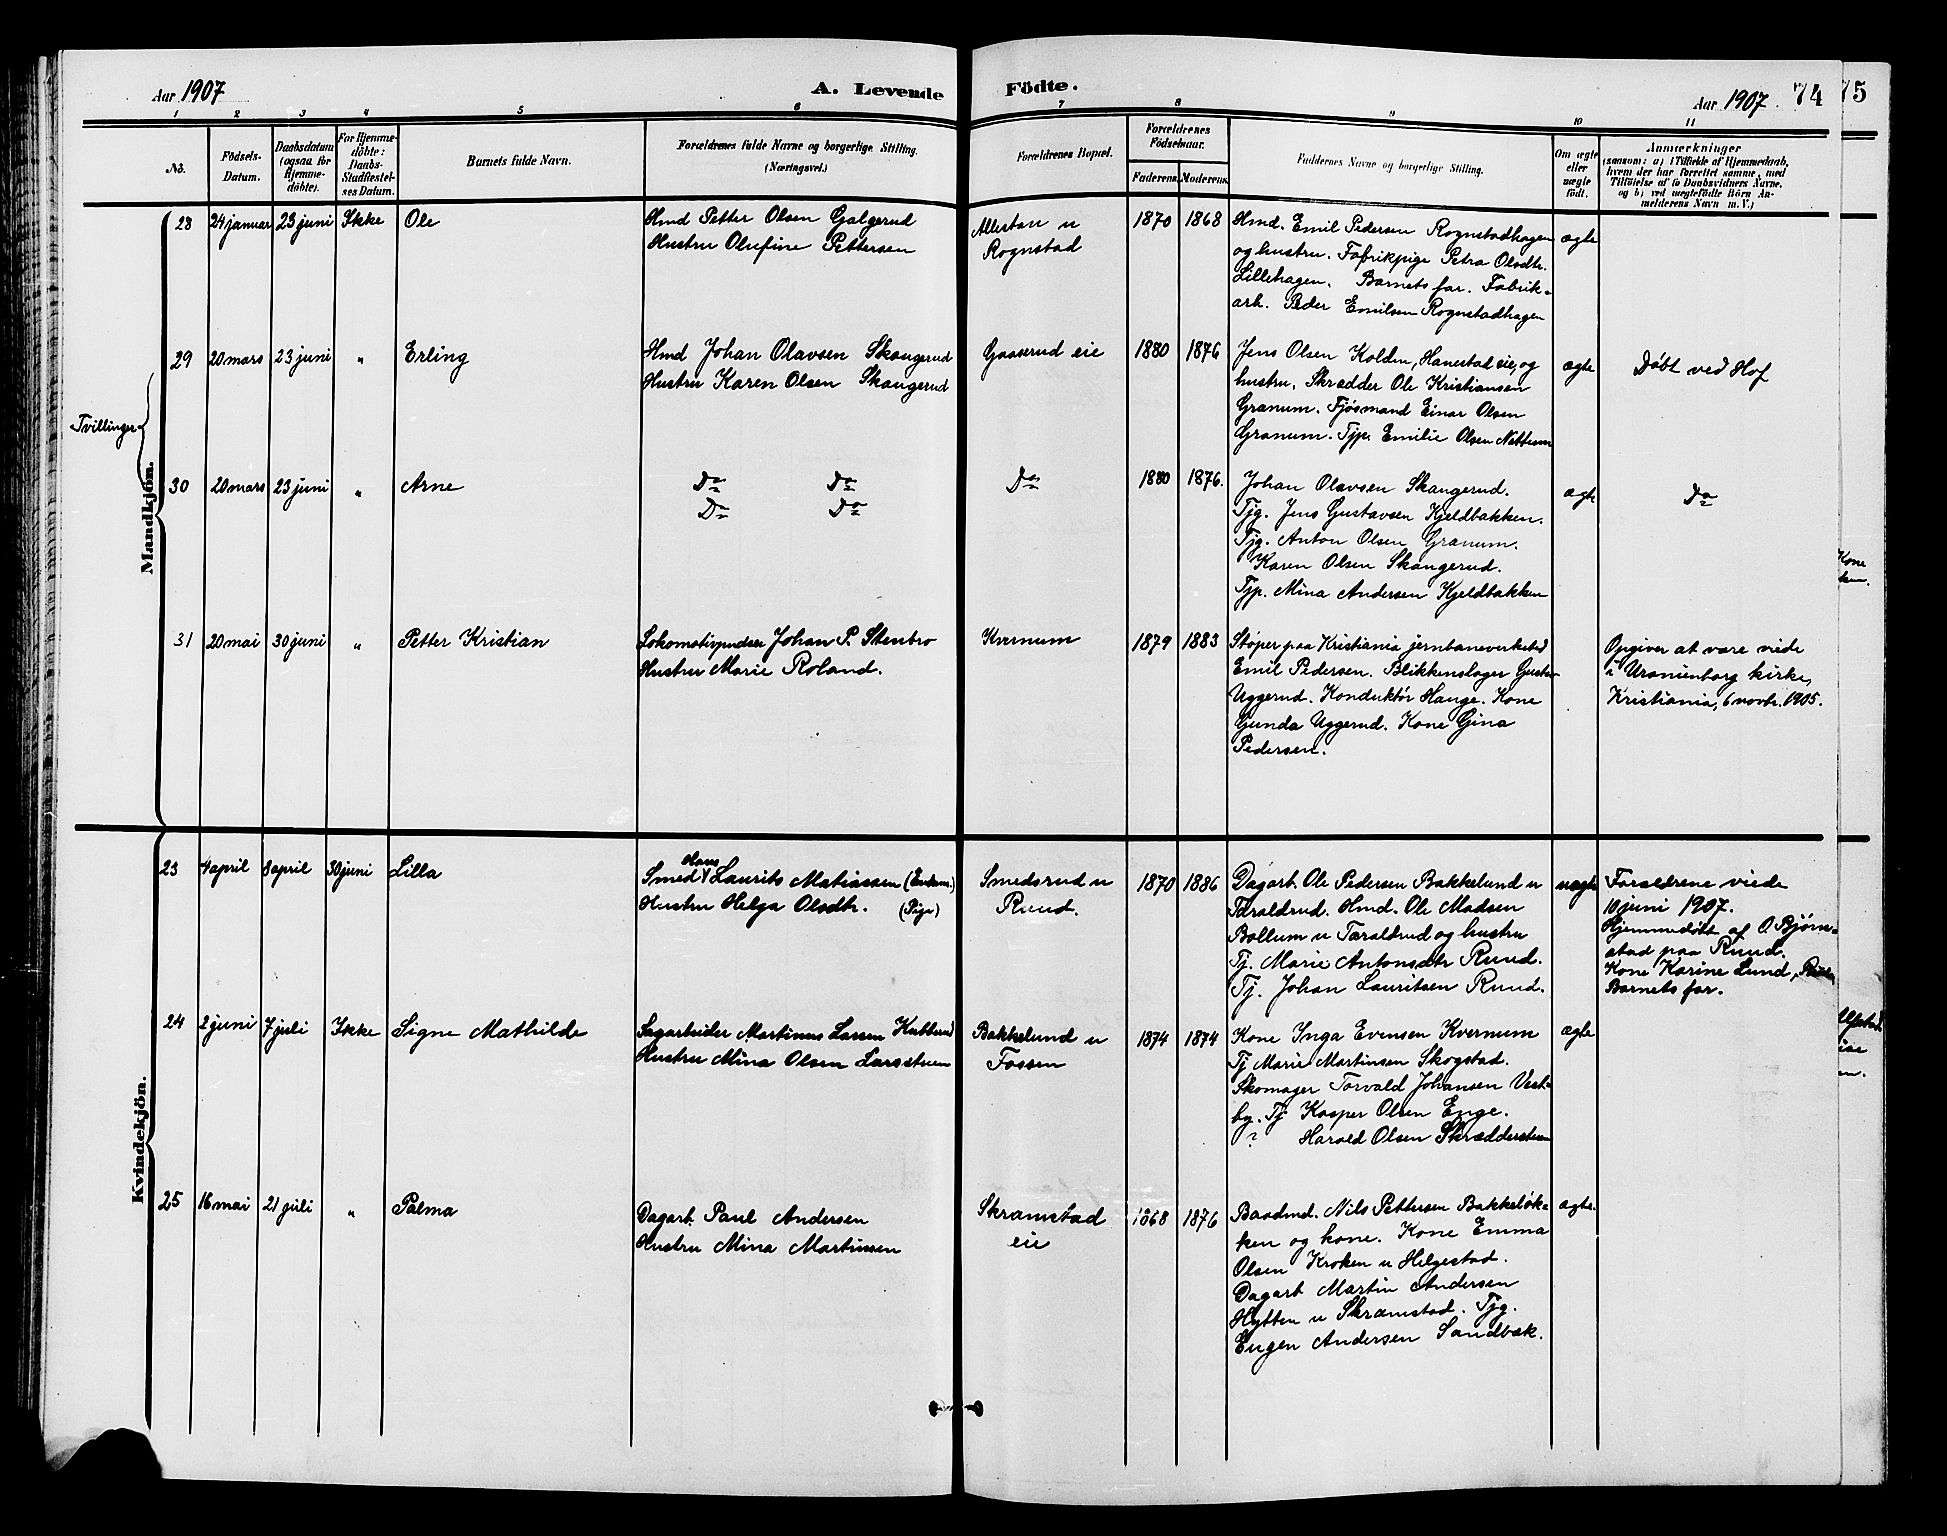 Aar 1907
A. Levende Födte.
Aar 1907
74
75
1 2 3 4 5 6 7 8 9 10 11
No.
Födsels-
Datum.
Daabsdatum
(ogsaa for
Hjemme-
döbte).
For Hjemme-
döbte:
Daabs-
Stadfæstel-
ses Datum.
Barnets fulde Navn.
Forældrenes fulde Navne og borgerlige Stilling.
(Næringsvei.)
Forældrenes Bopæl.
Forældrenes
Födselsaar.
Faderens. Moderens.
Faddernes Navne og borgerlige Stilling.
Om ægte
eller
uægte
født.
Anmærkninger
(saasom: a) i Tilfælde af Hjemmedaab,
hvem der har forrettet samme, med
Tilføielse af to Daabsvidners Navne,
og b) ved uægtefödte Börn An-
melderens Navn m. V.)
Mandkjön.
28 24 januar 23 juni Ikke Ole
Hmd Petter Olsen Galgerud
Hustru Olufine Pettersen
Allestan u
Rognstad
1870 1868
Hmd. Emil Pedersen Rognstadhagen
og hustru. Fabrikpige Petra Olsdtr.
Lillehagen. Barnets far. Fabrik-
arb. Peder Emilsen Rognstadhagen
ægte
Tvillinger
29 20 mars 23 juni " Erling
Hmd Johan Olavsen Skangerud
Hustru Karen Olsen Skangerud
Gaaserud eie
1880 1876
Jens Olsen Kolden, Hanestad eie, og
hustru. Skrædder Ole Kristiansen
Granum. Fjøsmand Einar Olsen
Granum. Tjp. Emilie Olsen Nettum
ægte
Døbt ved Hof
30 20 mars 23 juni " Arne
Do Do
Do Do
Do
1880 1876.
Johan Olavsen Skangerud.
Tjg. Jens Gustavsen Kjeldbakken.
Tjg. Anton Olsen Granum.
Karen Olsen Skangerud.
Tjp. Mina Andersen Kjeldbakken
ægte
Do
31 20 mai 30 juni " Petter Kristian
Lokomotivpudser Johan P. Stenbro
Hustru Marie Roland.
Kvernum
1879 1883
Støper paa Kristiania jernbaneverksted
Emil Pedersen. Blikkenslager Gustav
Uggerud. Konduktør Hauge. Kone
Gunda Uggerud. Kone Gina
Pedersen.
Opgiver at være viede
i Uranienborg kirke,
Kristiania, 6 novbr. 1905.
Kvindekjön.
23 4 april 8 april 30 juni Lilla
Hans
Smed Laurits Matiassen (Enkem.)
Hustru Helga Olsdtr. (Pige)
Smedsrud u
Ruud.
1870 1886
Dagarb. Ole Pedersen Bakkelund u
Taraldrud. Hmd. Ole Madsen
Bollum u Taraldrud og hustru
Tj. Marie Antonsdtr Ruud.
Tj. Johan Lauritsen Ruud.
uægte
Forældrene viede
10 juni 1907.
Hjemmedøbt af O. Bjørn-
stad paa Ruud.
Kone Karine Lund,
Barnets far.
24 2 juni 7 juli Ikke Signe Mathilde
Sagarbeider Martinus Larsen Kubberud
Hustru Mina Olsen Larsstuen
Bakkelund u
Fossen
1874 1874
Kone Inga Evensen Kvernum
Tj Marie Martinsen Skogstad.
Skomager Torvald Johansen Vest-
by. Tj Kasper Olsen Enge.
? Harold Olsen Skrædderstuen
ægte
25 16 mai 21 juli " Palma
Dagarb. Paul Andersen
Hustru Mina Martinsen
Skramstad
eie
1868 1876
Baadmd. Nils Pettersen Bakkeløk-
ken og kone. Kone Emma
Olsen Kroken u Helgestad.
Dagarb Martin Andersen
Hytten u Skramstad. Tjg.
Eugen Andersen Sandbæk.
ægte.
Kone